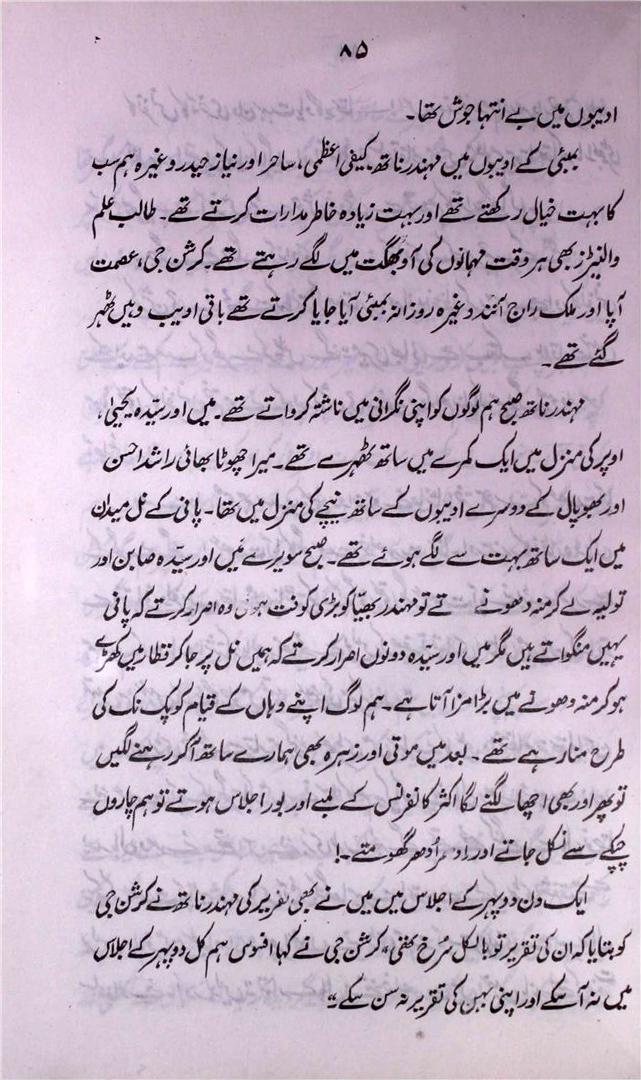 ۸۵
ادیبوں میں بے انتہا جوش تھا۔
بمبئی کے ادیبوں میں مہندر ناتھ۔ کیفی اعظمی، ساحر اور نیاز حیدر وغیرہ ہم سب
کا بہت خیال رکھتے تھے اور بہت زیادہ خاطر مدارات کرتے تھے۔ طالب علم
والنیٹرز بھی ہر وقت مہمانوں کی آؤ بھگت میں لگے رہتے تھے۔ کرشن جی، عصمت
آپا اور ملک راج آنند وغیرہ روزانہ بمبئی آیا جایا کرتے تھے باقی ادیب وہیں ٹھہر
گئے تھے۔
مہندر ناتھ صبح ہم لوگوں کو اپنی نگرانی میں ناشتہ کرواتے تھے۔ میں اور سیّدہ یحییٰ،
اوپر کی منزل میں ایک کمرے میں ساتھ ٹھہرے تھے۔ میرا چھوٹا بھائی راشد احسن
اور بھوپال کے دوسرے ادیبوں کے ساتھ نیچے کی منزل میں تھا۔ پانی کے نل میدان
میں ایک ساتھ بہت سے لگے ہوئے تھے۔ صبح سویرے میں اور سیّدہ صابن اور
تولیہ لے کر منہ دھونے تے تو مہندر بھیّا کو بڑی کوفت ہوتی وہ اصرار کرتے کہ پانی
یہیں منگواتے ہیں مگر میں اور سیّدہ دونوں اصرار کرتے کہ ہمیں نل پر جا کر قطار میں کھڑے
ہو کر منہ دھونے میں بڑا مزا آتا ہے۔ ہم لوگ اپنے وہاں کے قیام کو پک نک کی
طرح منا رہے تھے۔ بعد میں موتی اور زہرہ بھی ہمارے ساتھ آ کر رہنے لگیں
تو پھر اور بھی اچھا لگنے لگا اکثر کانفرنس کے لمبے اور بور اجلاس ہوتے تو ہم چاروں
چپکے سے نکل جاتے اور ادھر اُدھر گھومتے۔!
ایک دن دوپہر کے اجلاس میں میں نے بھی تقریر کی مہندر ناتھ نے کرشن جی
کو بتایا کہ ان کی تقریر تو بالکل سُرخ تھی، کرشن جی نے کہا افسوس ہم کل دوپہر کے اجلاس
میں نہ آ سکے اور اپنی بہن کی تقریر نہ سن سکے"